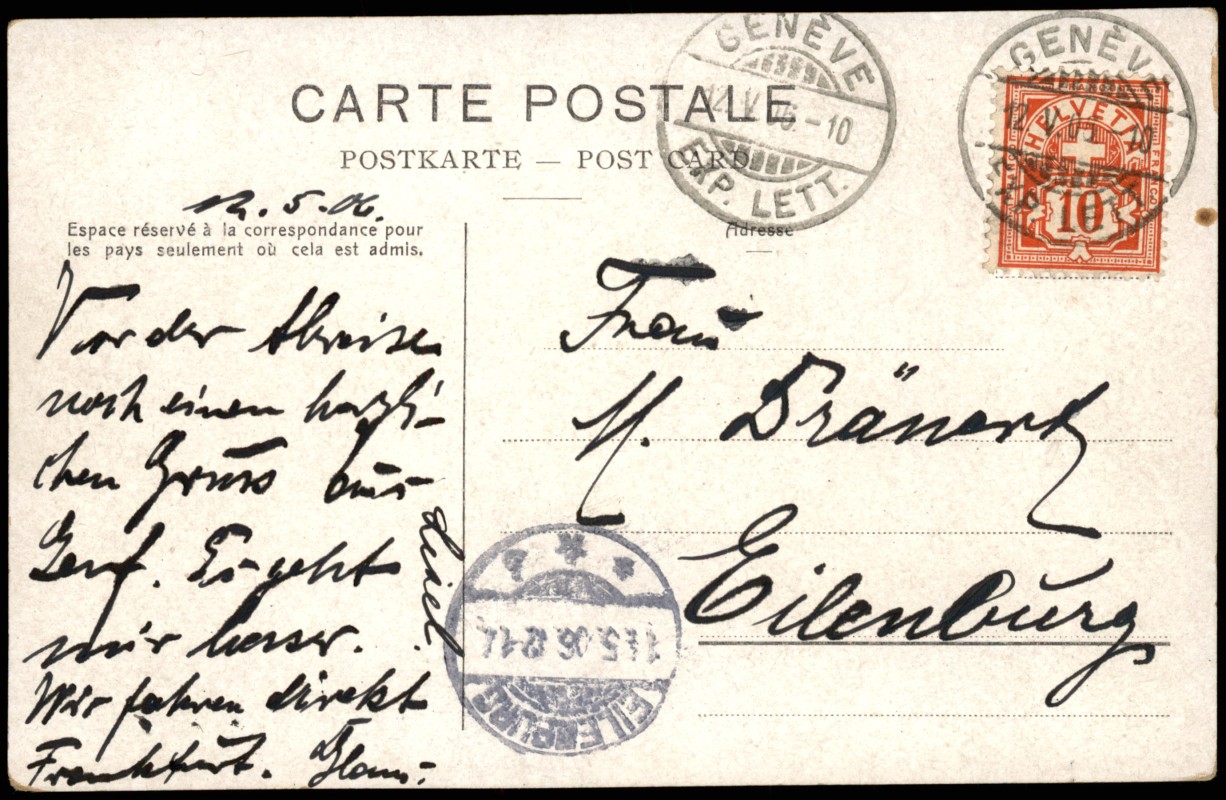 CARTE POSTALE
POSTKARTE — POST CARD
GENÈVE
12.V.06.–10
EXP. LETT.
GENÈVE
12.V.06.–10
EXP. LETT.
HELVETIA
10
12. 5. 06.
Espace réservé à la correspondance pour
les pays seulement où cela est admis.
Vor der Abreise
noch einen herzli-
chen Gruss aus
Genf. Es geht
mir besser.
Wir fahren direkt
Frankfurt.
Adresse
Frau
M. Dränert
Eilenburg
EILENBURG